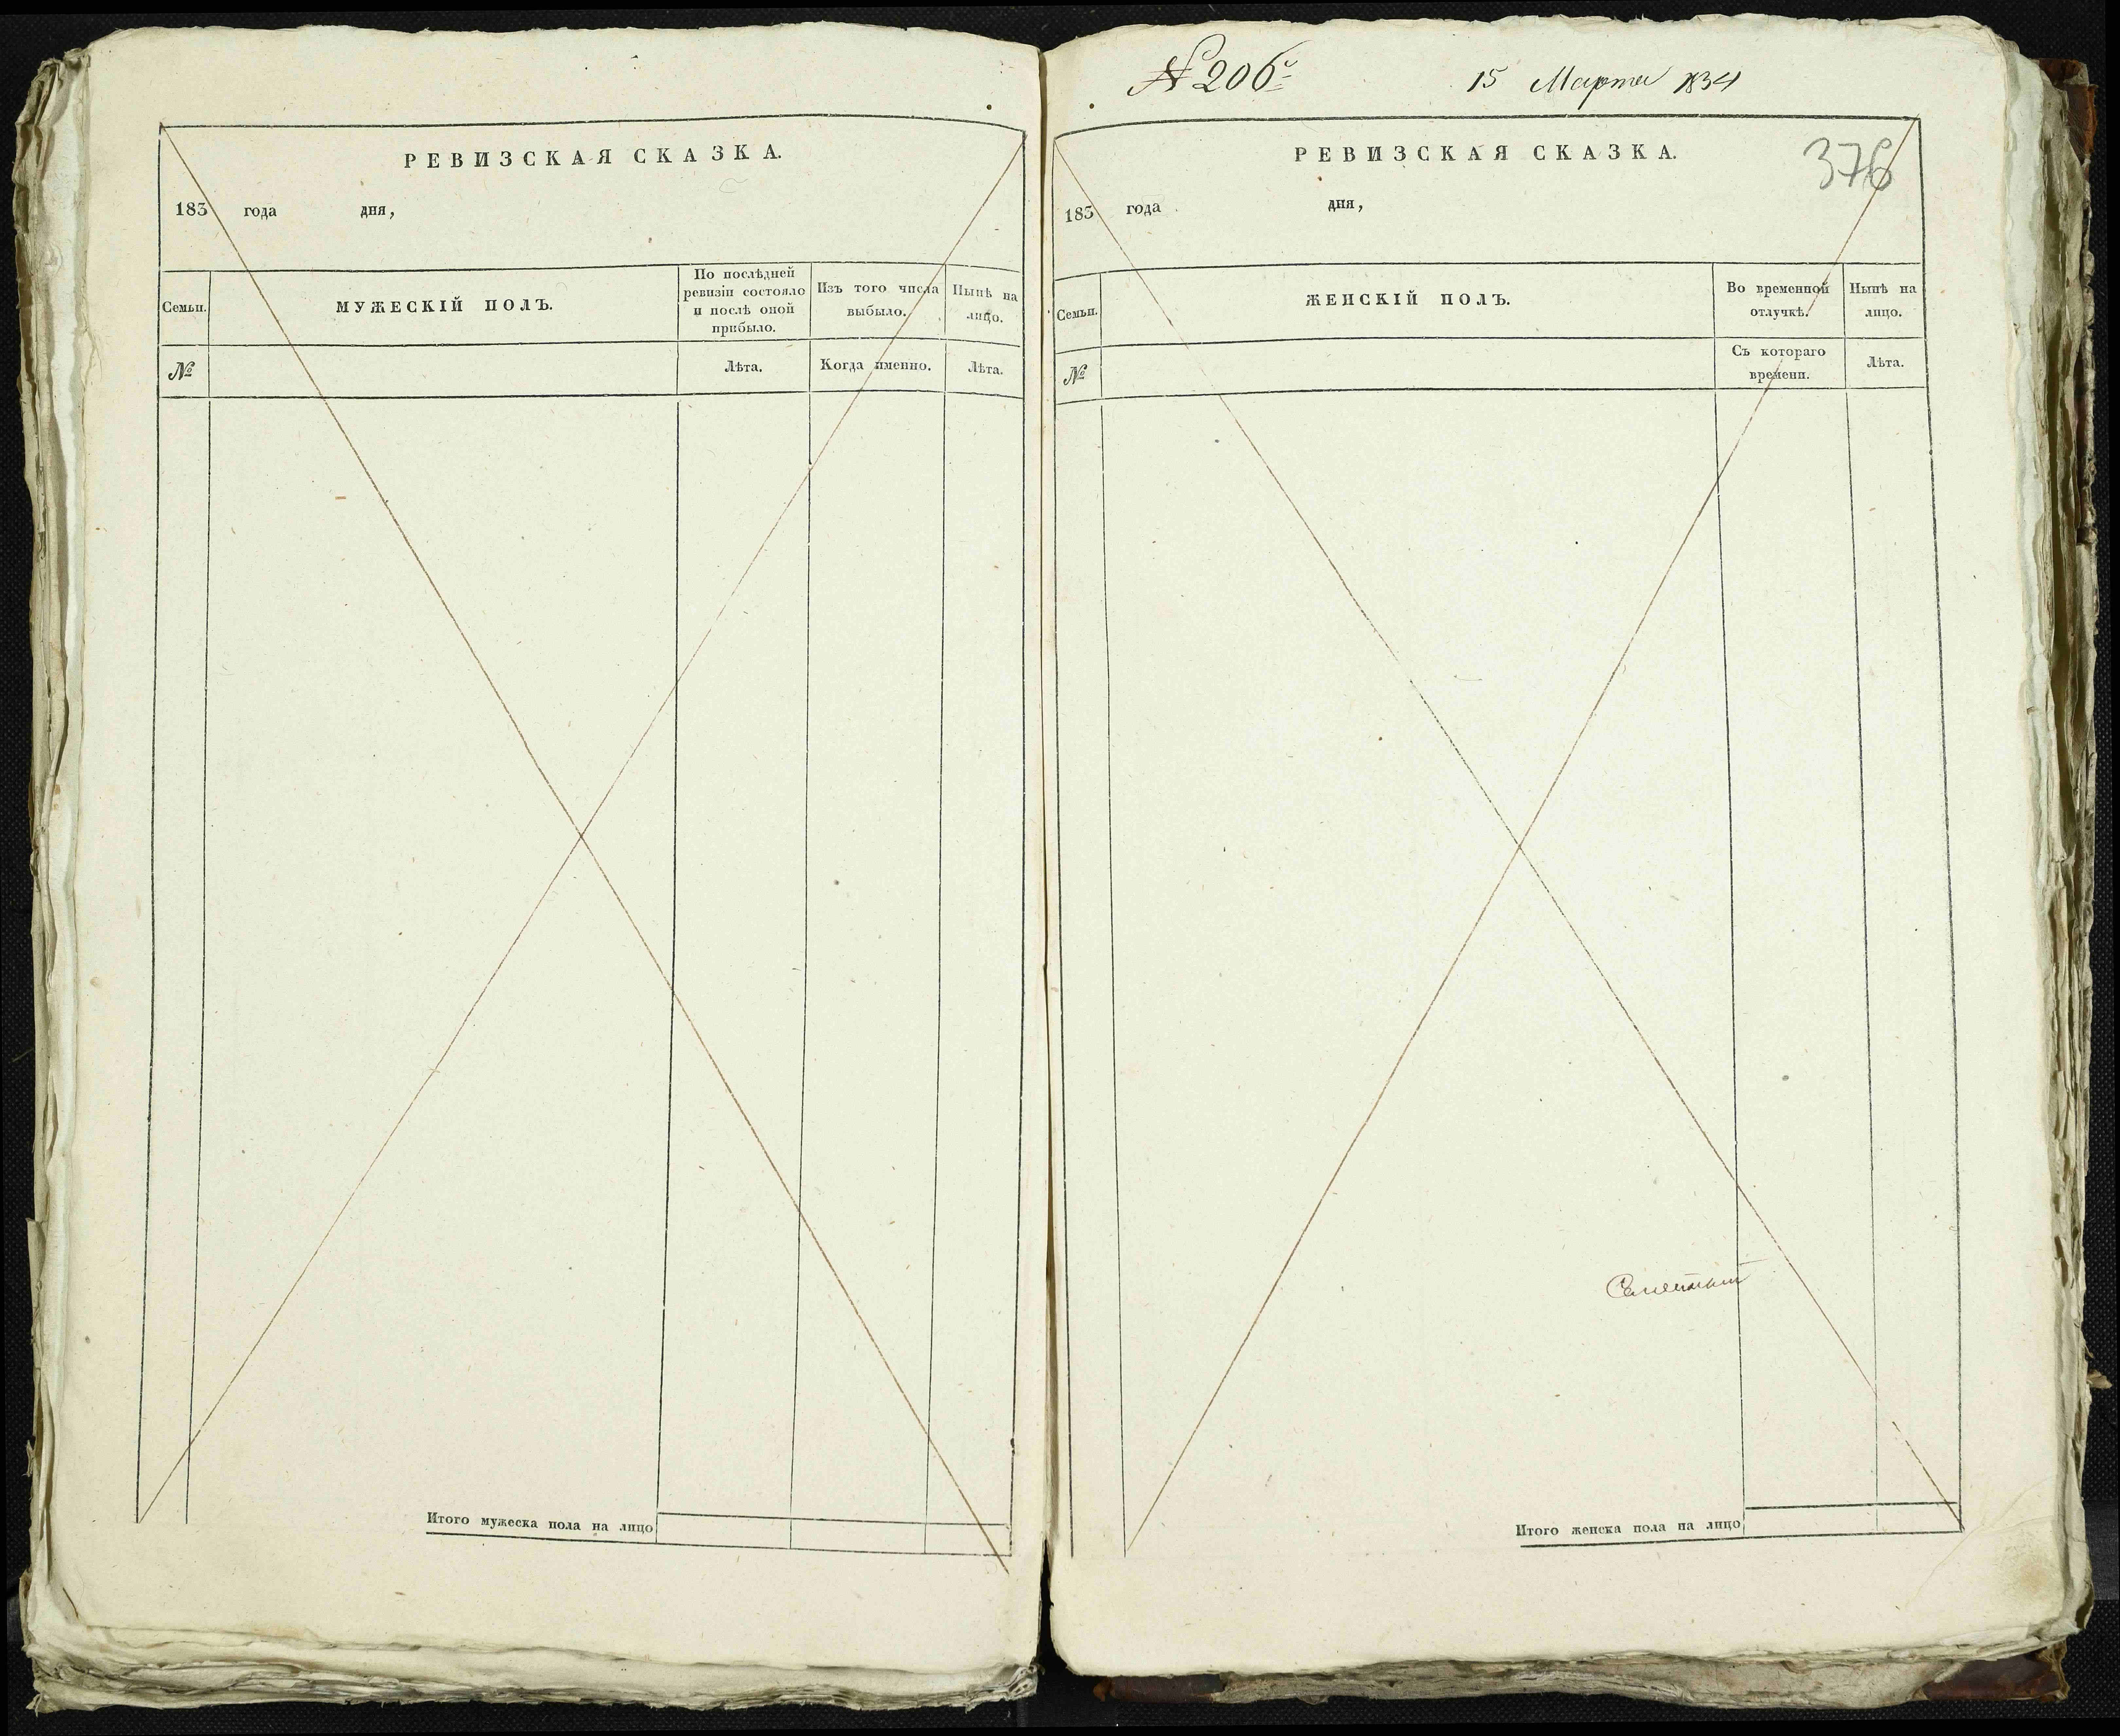 РЕВИЗСКАЯ СКАЗКА.
183 года дня,
Семьи. МУЖЕСКІЙ ПОЛЪ. По послѣдней ревизіи состояло и послѣ оной прибыло. Изъ того числа выбыло. Нынѣ на лицо.
№ Лѣта. Когда именно. Лѣта.
Итого мужеска пола на лицо
№ 206й 15 Марта 1834
376
РЕВИЗСКАЯ СКАЗКА.
183 года дня,
Семьи. ЖЕНСКІЙ ПОЛЪ. Во временной отлучкѣ. Нынѣ на лицо.
№ Съ котораго времени. Лѣта.
Итого женска пола на лицо